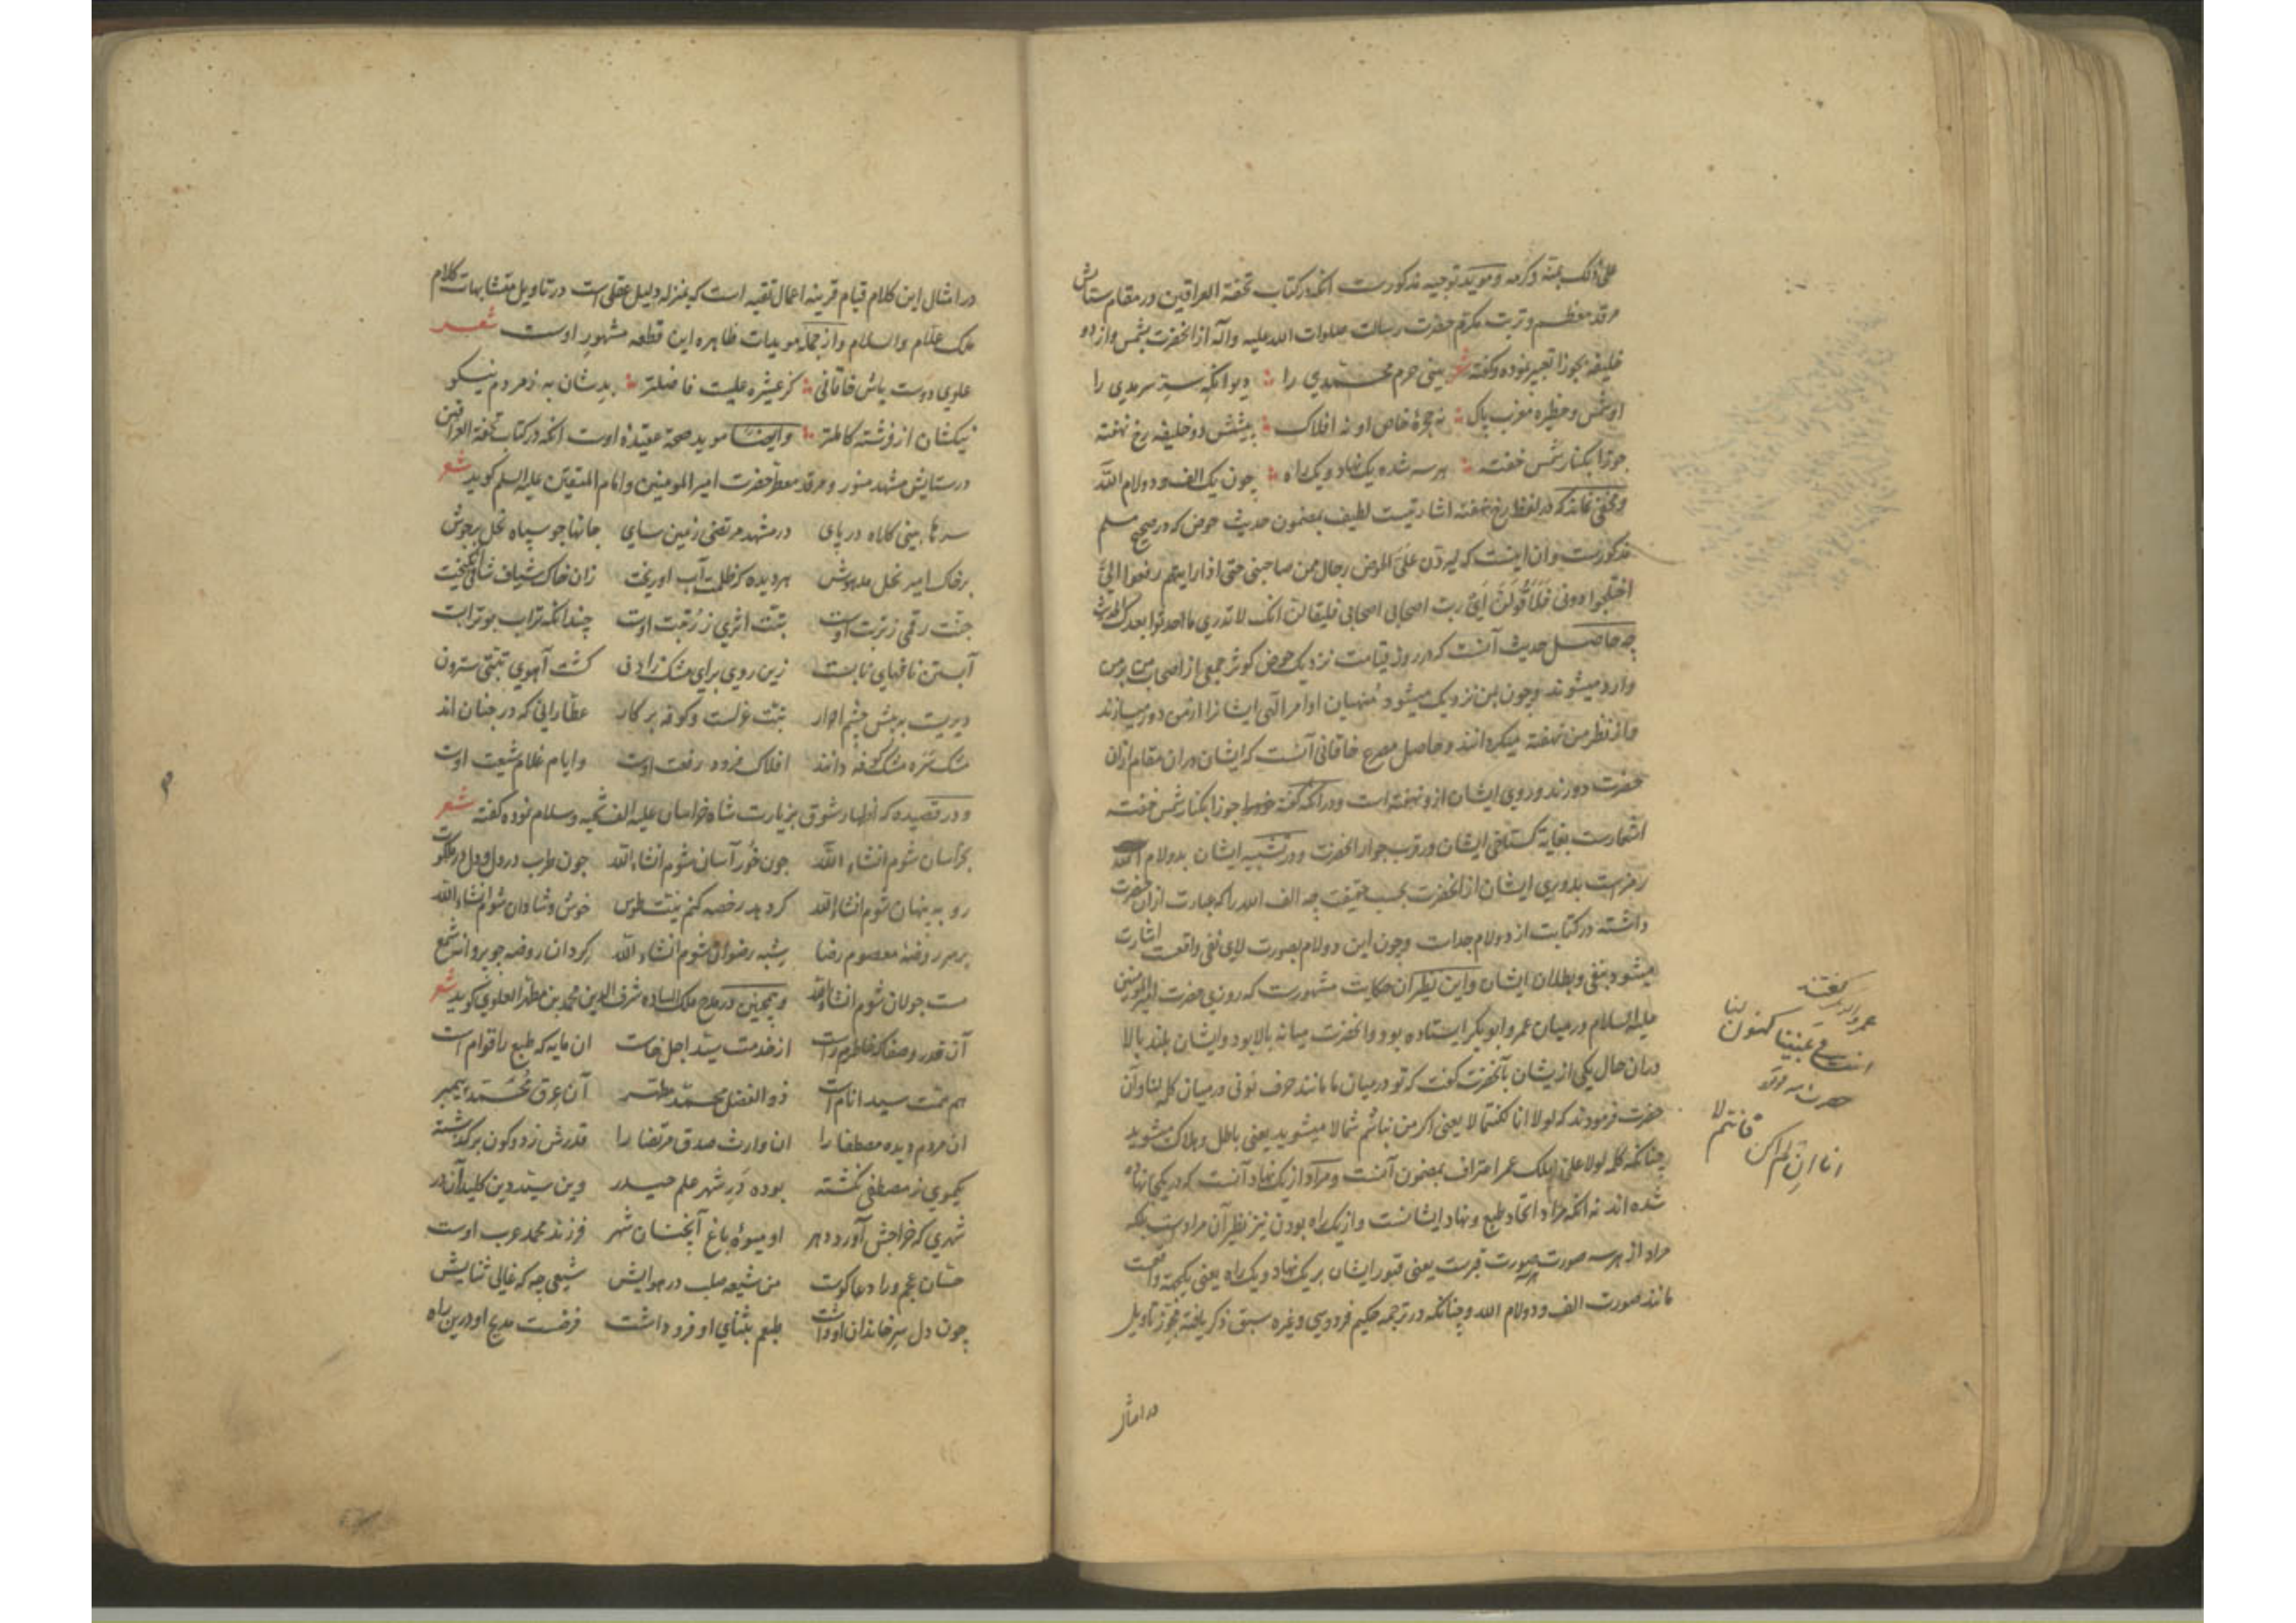 علی ذلک بمنه وکرمه و موید توجیه مذکورست آنکه در کتاب تحفة العراقین در مقام ستایش
مرقد معظم و تربت مکرم حضرت رسالت صلوات الله علیه وآله از آنحضرت بشمس و از دو
خلیفه بجوزا تعبیر نموده و گفته شعر بینی حرم محمدی را سرمدی را
او شمس و حظیره مغرب پاک نه حجرهٔ خاص او نه افلاک پیشش دو خلیفه رخ نهفته
جوزا بکنار شمس خفته هر سه شده یک نهاد و یک راه چون یک الف و دو لام الله
و مخفی نماند که در لفظ رخ نهفته اشارتیست لطیف بمضمون حدیث حوض که در صحیح مسلم
مذکورست و ان اینست که لیردن علی الحوض رجال ممن صاحبنی حتی اذا رایتهم رفعوا الیّ
اختلجوا دونی فلاقولن ای رب اصحابی اصحابی فلیقالن انک لا تدری ما احدثوا بعدک الحدیث
چه حاصل حدیث آنست که در روز قیامت نزدیک حوض کوثر جمعی از اصحاب من بر من
وارد میشوند و چون بمن نزدیک میشود منهیان اوامر الهی ایشانرا از من دور میسازند
و از نظر من نهفته میگردانند و حاصل مصرع خاقانی آنست که ایشان در ان مقام از ان
حضرت دورند و روی ایشان ازو نهفته است و در آنکه گفته جوزا بکنار شمس خفته
اشعارست بغایة گستاخی ایشان در قرب جوار آنحضرت و در تشبیه ایشان بدو لام الله
رمزیست بدوری ایشان از آنحضرت بحسب حقیقت چه الف الله را که عبارت از ان حضرت
داشته در کتابت از دو لام جداست و چون این دو لام بصورت لای نفی واقعست اشارت
میشود بنفی و بطلان ایشان و این نظیر ان حکایت مشهورست که روزی حضرت امیرالمومنین
علیه السلام در میان عمر و ابو بکر ایستاده بود و آنحضرت میانه بالا بود و ایشان بلند بالا
دران حال یکی از یشان بآنحضرت گفت که تو در میان ما مانند حرف نونی در میان کلمه لنا و آن
حضرت فرمودند که لولا انا لکنتما لا یعنی اگر من نباشم شما لا میشوید یعنی باطل و هلاک میشوید
چنانکه کلمه لولا علی لهلک عمر اعتراف بمضمون آنست و مراد از یک نهاد آنست که در یکجا نهاده
شده اند نه آنکه مراد اتحاد طبع و نهاد ایشانست و از یک راه بودن نیز نظیر آن مرادست بلکه
مراد از هر سه صورت صورت قبرست یعنی قبور ایشان بر یک نهاد و یک راه یعنی یکجهة واقعست
مانند صورت الف و دو لام الله و چنانکه در ترجمه حکیم فردوسی و غیره سبق ذکر یافته مجوز تاویل
در امثال
گفتند
انت فی بیننا کنون لنا
حضرت فرمود
انا ان لم اکن فانتم لا
در امثال این کلام قیام قرینه اعمال تقیه است که بمنزله دلیل عقلی است در تاویل متشابهات کلام
ملک علام والسلام و از جمله مویدات ظاهره این قطعه مشهور اوست شعر
علوی دوست باش خاقانی کز عشیره علیست فاضلتر بدشان به ز مردم نیکو
نیکشان از فرشته کاملتر وایضا موید صحة عقیدهٔ اوست آنکه در کتاب تحفة العراقین
در ستایش مشهد منور و مرقد معطر حضرت امیرالمومنین و امام المتقین علیه السلم گوید شعر
سرها بینی کلاه در پای در مشهد مرتضی زمین سای جانها چو سپاه نحل پرجوش
بر خاک امیر نحل مدهوش هر دیده کز ظلمت آب او ریخت زان خاک شیاف شافی انگیخت
جنت رقمی ز تربت اوست تبت اثری ز اوست چندانکه تراب بوترابست
آبستن نافهای نابست زین روی برای مشک زادن گشت آهوی تبتی سترون
دیریست به پیش چشم احرار تبت و کوفه بر کار عطارانی که در جنان اند
مشک سره مشک کوفه دانند افلاک فرود رفعت اوست وایام غلام شیعت اوست
و در قصیده که اظهار شوق بزیارت شاه خراسان علیه الف تحیة وسلام نموده گفته شعر
بخراسان شوم انشاء الله چون خور آسان شوم انشاء الله چون طرب در دل و دل در ملکوت
ره به پنهان شوم انشاء الله گر دهد رخصه کنم نیت طوس خوش و شادان شوم انشاء الله
بر سر روضه معصوم رضا شبه رضوان شوم انشاء الله گرد ان روضه چو پروانه شمع
مست جولان شوم انشاء الله و همچنین در مدح ملک الساده شرف الدین محمد بن مطهر العلوی گوید شعر
آن قدر و صفا که خاطرم راست از خدمت سید اجل خاست ان مایه که طبع را قوام است
هم همت سید انام است ذو الفضل محمد مطهر آن عرق محمد پیمبر
ان مردم دیده مصطفا را ان وارث صدق مرتضا را قدرش ز دو کون برگذشته
یکموی ز مصطفی نگشته بوده در شهر علم حیدر وین سید دین کلید آن در
شهری که خراجش آورد دهر او میوهٔ باغ آنچنان شهر فرزند محمد عرب اوست
حسّان عجم ورا دعا گوست من شیعه صلب در هوایش شیعی چه که غالی ثنایش
چون دل سیر خاندان او داشت طبعم بثنای او فرو داشت فرضست مدیح او درین راه